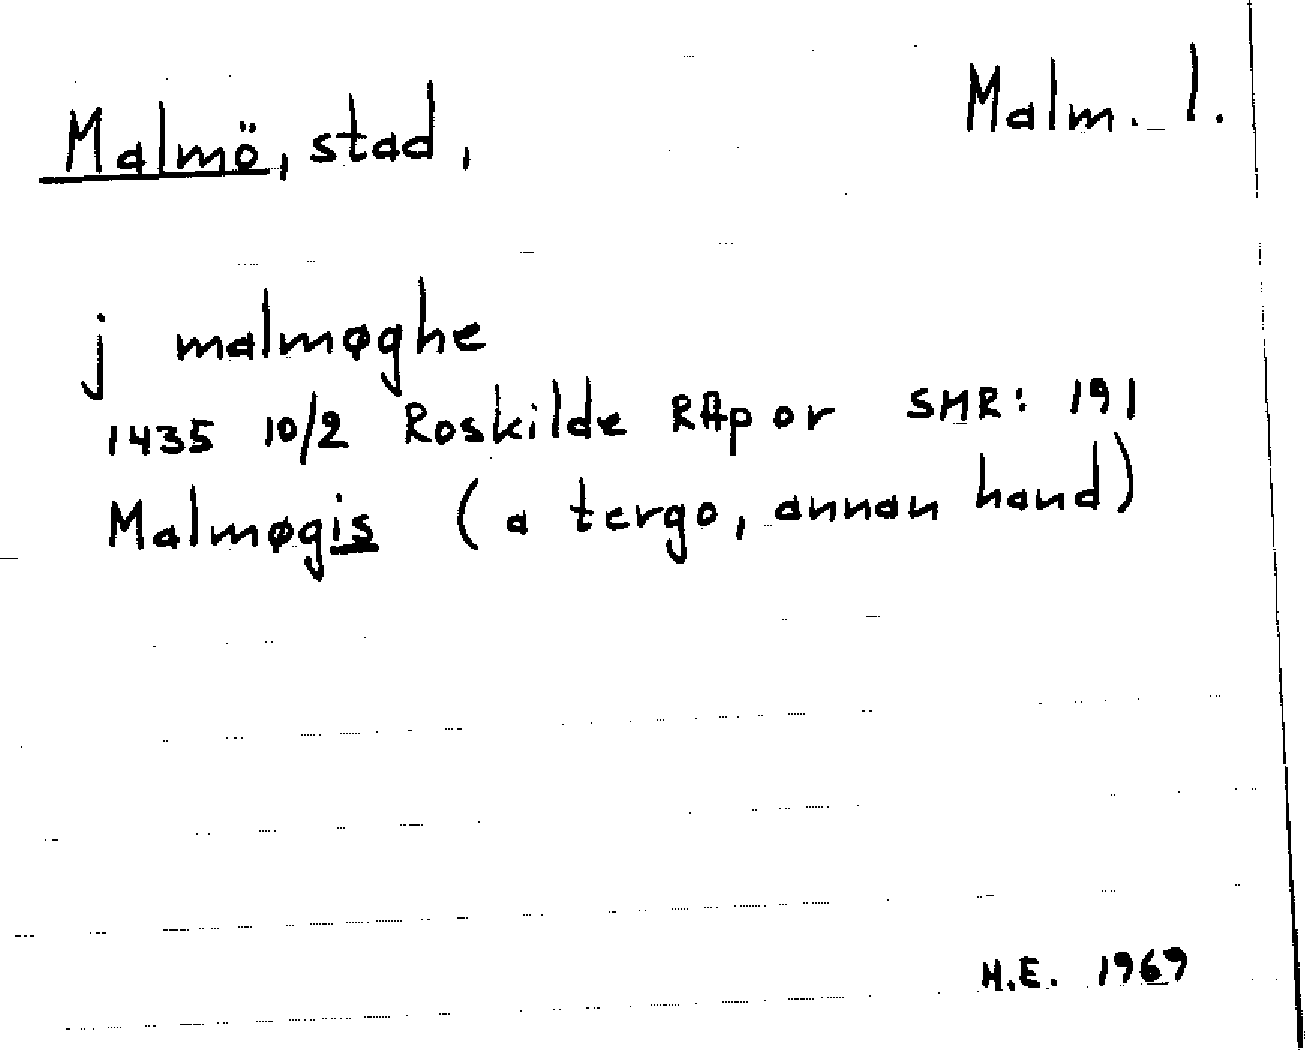 Malmö, stad,
Malm. l.
j malmøghe
1435 10/2 Roskilde RAp or SMR: 191
Malmøgis (a tergo, annan hand)
H.E. 1969